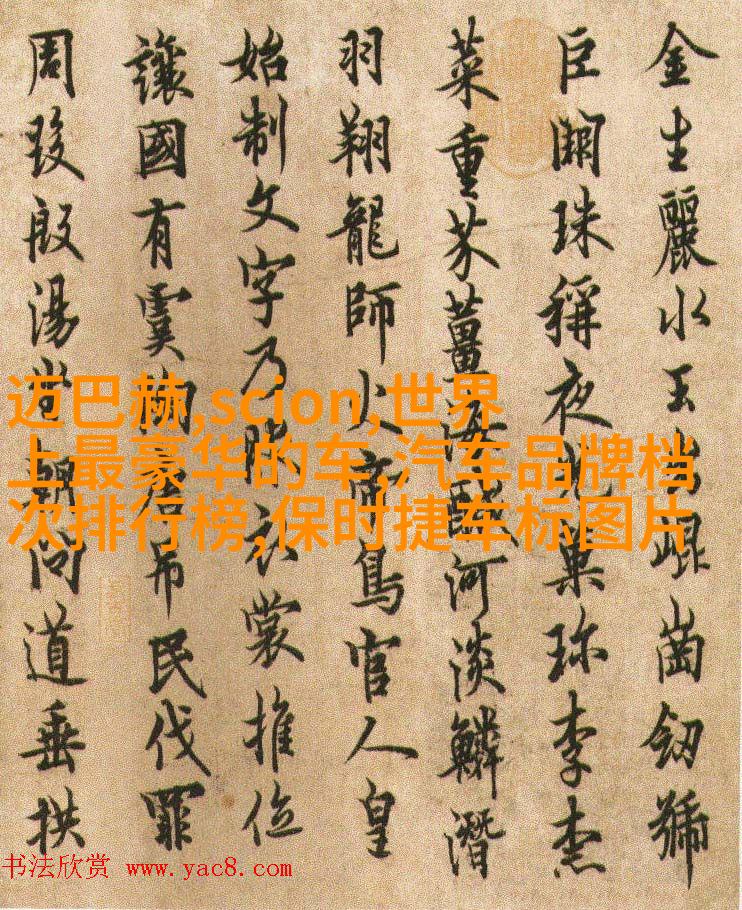 金生麗水玉出崐崗劒號
巨闕珠稱夜光菓珎李柰
菜重芥薑海鹹河淡鱗潛
羽翔龍師火帝鳥官人皇
始制文字乃服衣裳推位
讓國有虞陶唐弔民伐罪
周發殷湯坐朝問道垂拱
迈巴赫,scion,世界
上最豪华的车,汽车品牌档
次排行榜,保时捷车标图片
书法欣赏 www.yac8.com